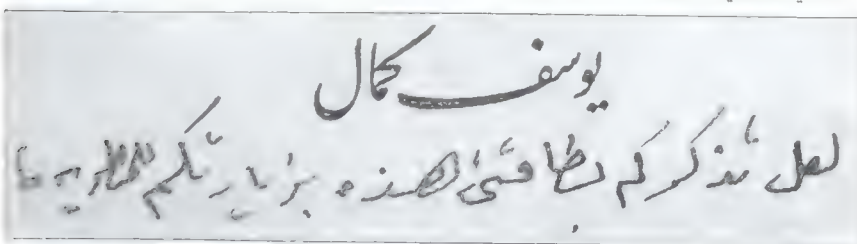 يوسف كمال
لعل تذكركم بطاقتى هذه بزيارتكم للمطرية